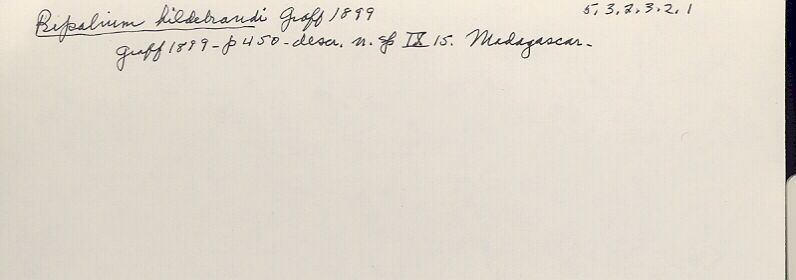 Bipalium hildebrandi Graff 1899 5.3.2.3.2.1
Graff 1899 - p 450 - descr. n. sp IX 15. Madagascar.